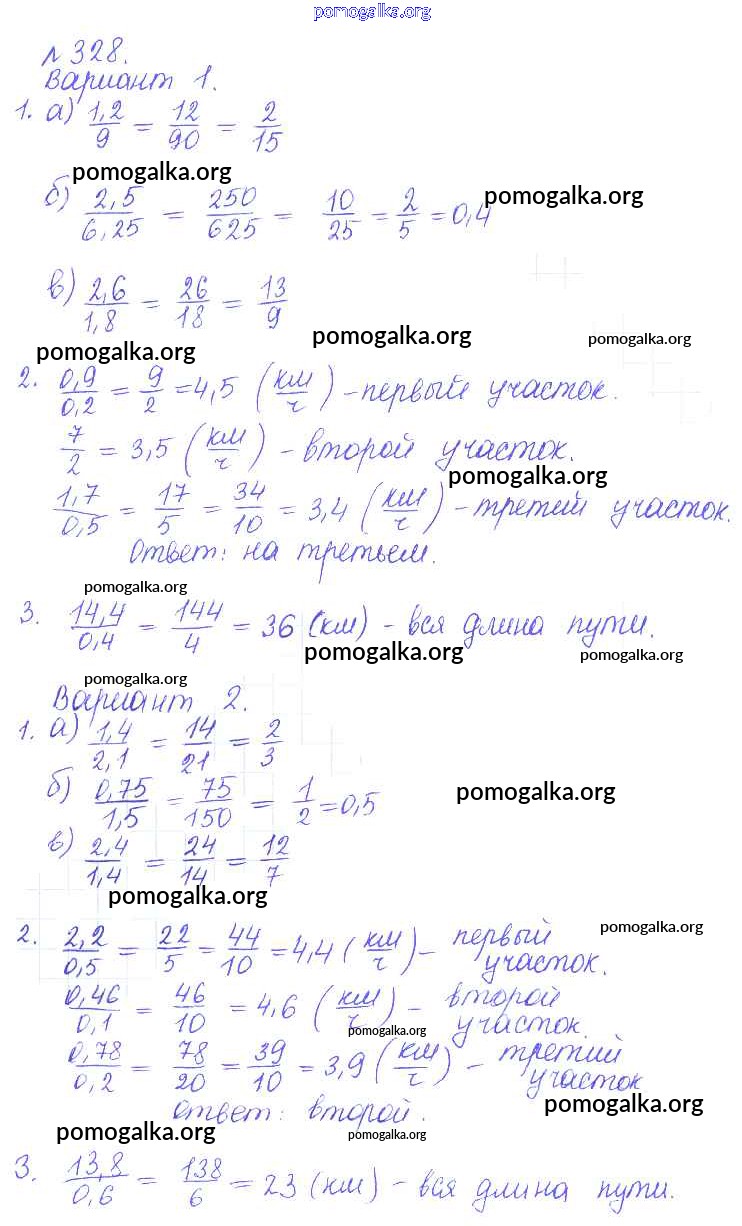 pomogalka.org
№ 328.
Вариант 1.
1. а) 1,2/9 = 12/90 = 2/15
pomogalka.org
б) 2,5/6,25 = 250/625 = 10/25 = 2/5 = 0,4
pomogalka.org
в) 2,6/1,8 = 26/18 = 13/9
pomogalka.org
pomogalka.org
pomogalka.org
2. 0,9/0,2 = 9/2 = 4,5 (км/ч) – первый участок.
7/2 = 3,5 (км/ч) – второй участок.
pomogalka.org
1,7/0,5 = 17/5 = 34/10 = 3,4 (км/ч) – третий участок.
Ответ: на третьем.
pomogalka.org
3. 14,4/0,4 = 144/4 = 36 (км) – вся длина пути.
pomogalka.org
pomogalka.org
pomogalka.org
Вариант 2.
1. а) 1,4/2,1 = 14/21 = 2/3
б) 0,75/1,5 = 75/150 = 1/2 = 0,5
pomogalka.org
в) 2,4/1,4 = 24/14 = 12/7
pomogalka.org
pomogalka.org
2. 2,2/0,5 = 22/5 = 44/10 = 4,4 (км/ч) – первый
участок.
0,46/0,1 = 46/10 = 4,6 (км/ч) – второй
участок.
pomogalka.org
0,78/0,2 = 78/20 = 39/10 = 3,9 (км/ч) – третий
участок
Ответ: второй.
pomogalka.org
pomogalka.org
pomogalka.org
3. 13,8/0,6 = 138/6 = 23 (км) – вся длина пути.